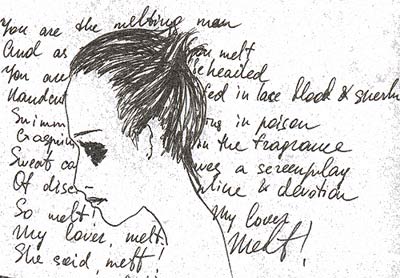 You are the melting men
And as you melt
You are beheaded
Handcuffed in lace blood & sperm
Swimming in poison
Gasping in the fragrance
Sweat carves a screenplay
Of discipline & devotion
So melt! My lover,
My lover, melt. Melt!
She said, melt!